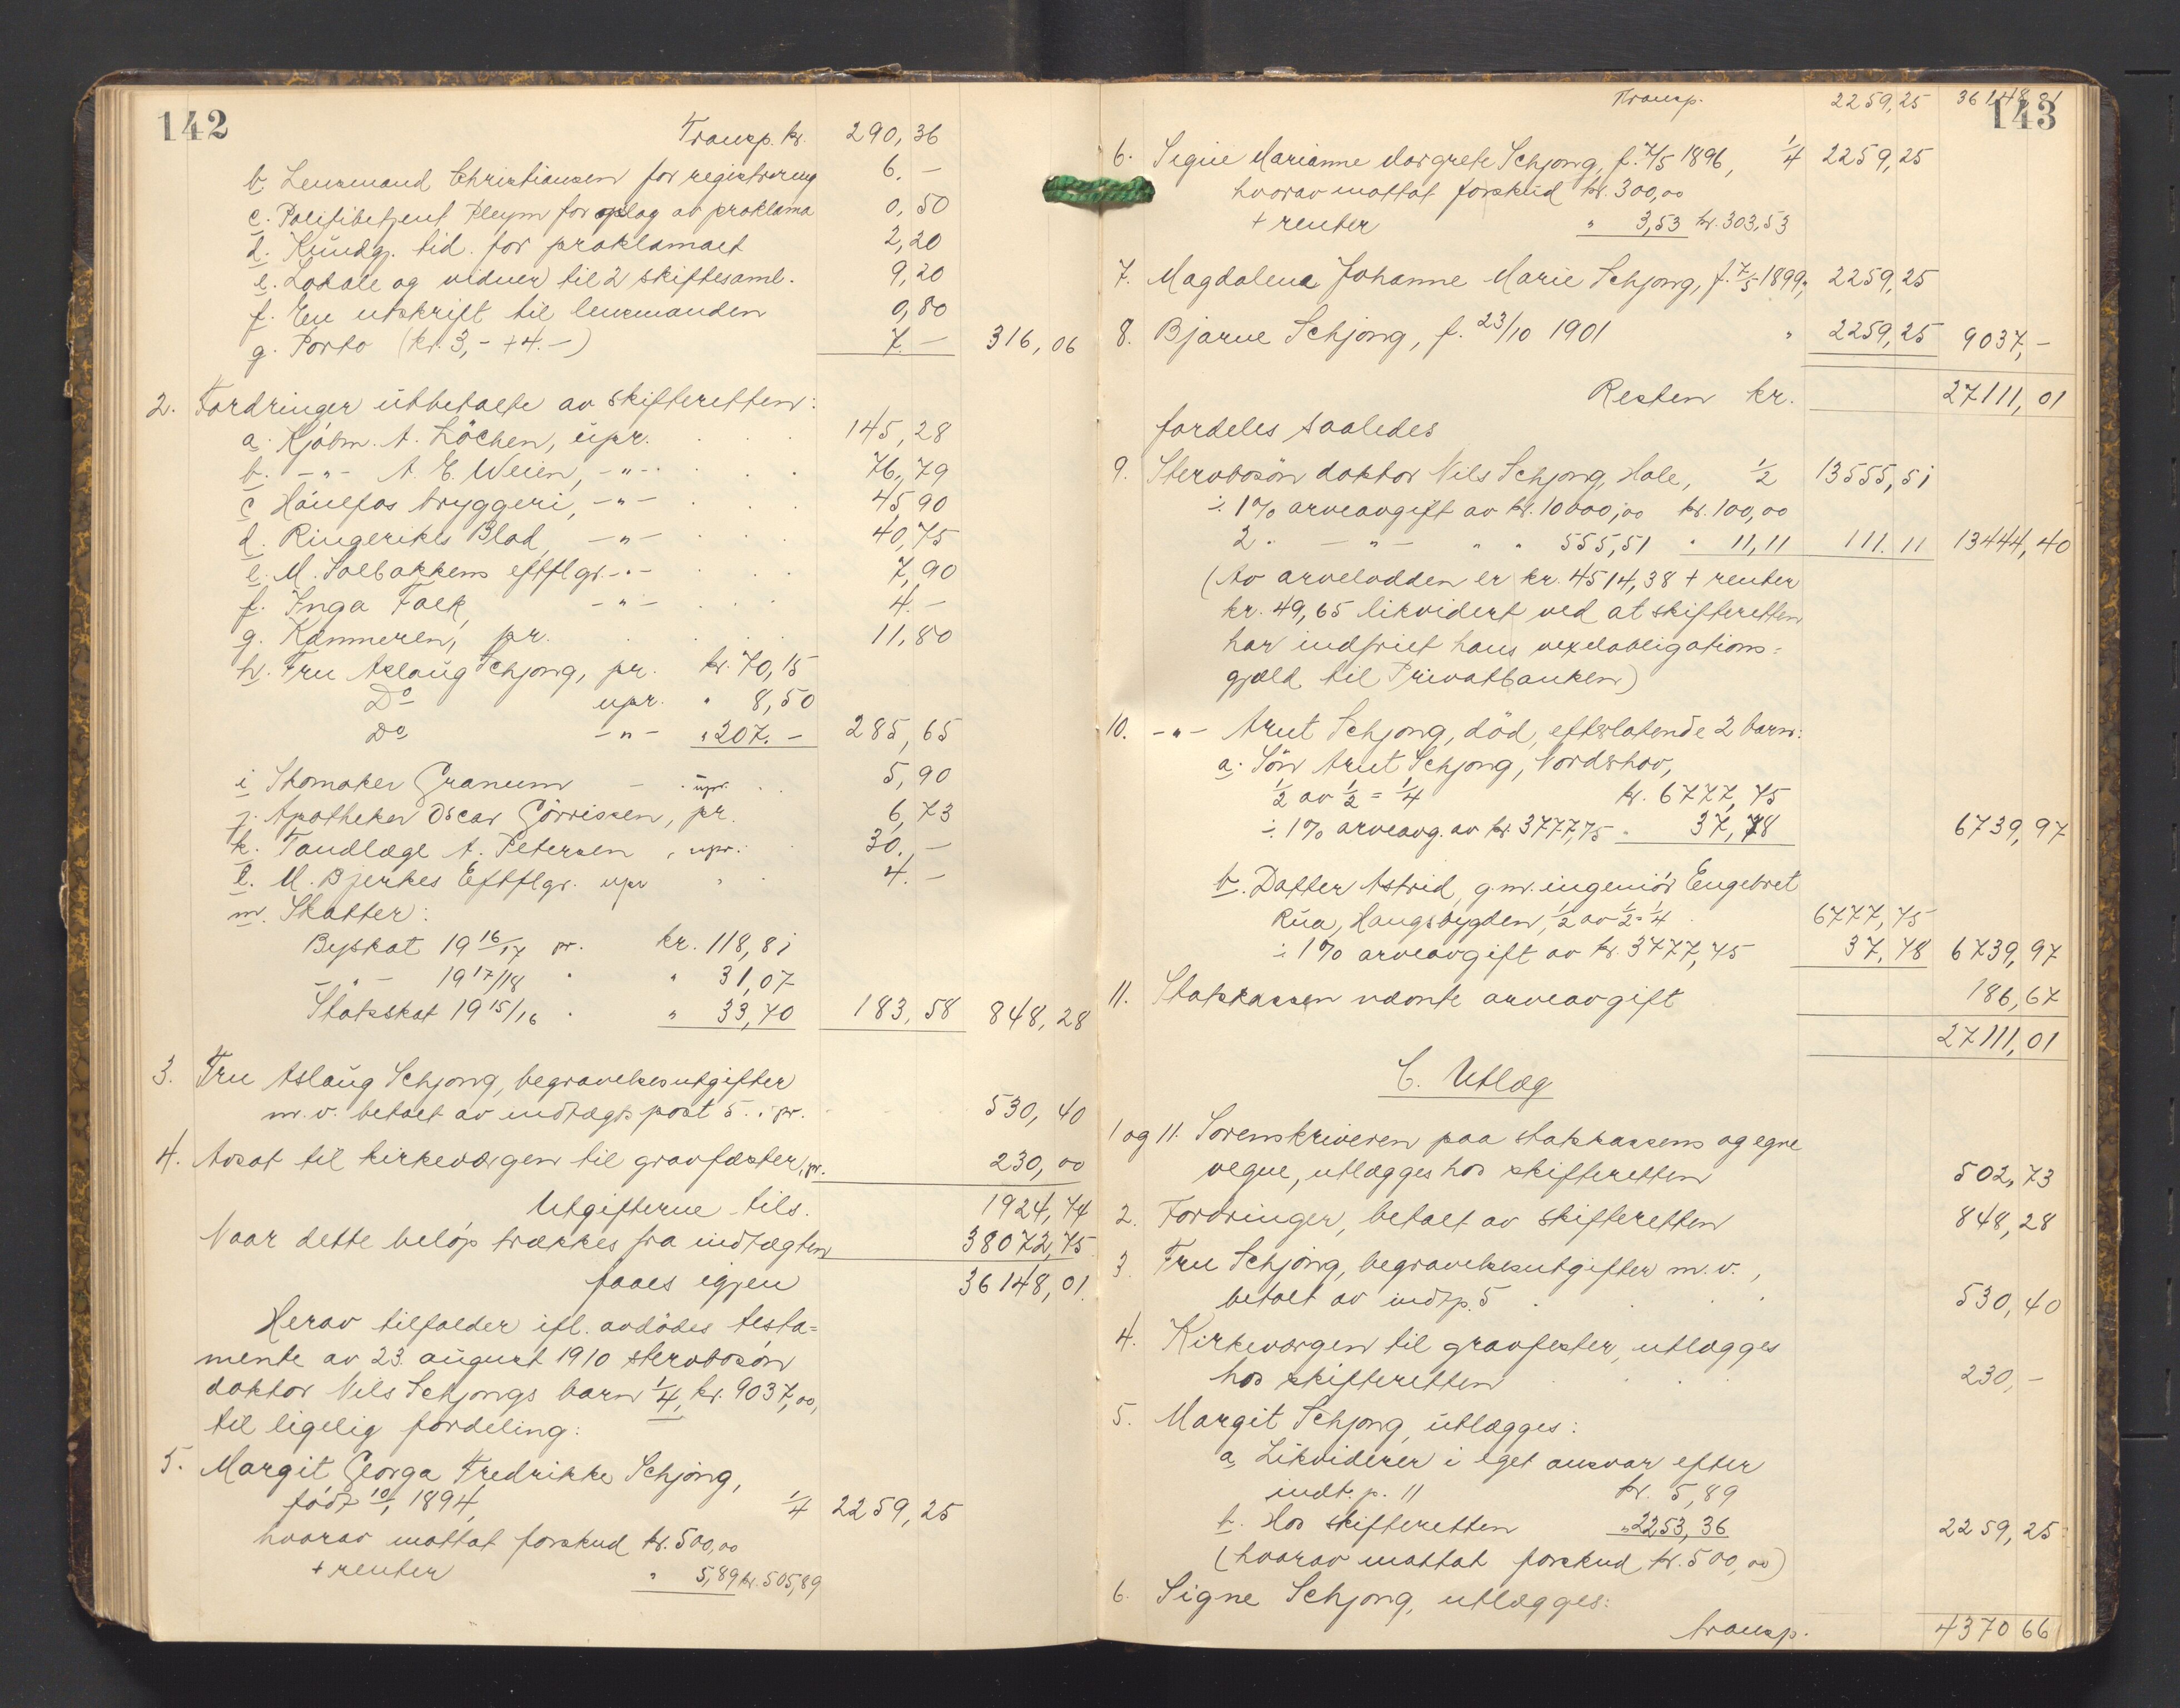 142
Transp. kr. 290,36
b. Lensmand Christiansen for registrering 6.-
c. Politibetjent Pleym for opslag av proklama 0,50
d. Kundgj. tid. for proklamaet 2,20
e. Lokale og vidner til 2 skiftesaml. 9,20
f. En utskrift til lensmanden 0,80
g. Porto (kr. 3,- + 4.-) 7.- 316,06
2. Fordringer utbetalte av skifteretten:
a. Kjøbm. A. Løchen, upr. 145,28
b. -"- A. E. Weien, -"- 76,79
c Hønefos bryggeri, -"- 45,90
d. Ringerikes Blad, -"- 40,75
e. M. Solbakkens eftflgr. -"- 7,90
f. Inga Falk, -"- 4.-
g. Kæmneren, pr. 11,80
h. Fru Aslaug Schjong, pr. kr. 70,15
Do upr. " 8,50
Do -"- " 207.- 285,65
i Skomaker Granum - upr. 5,90
j. Apotheker Oscar Gørrissen, pr. 6,73
k. Tandlæge A. Petersen, upr. 30,-
l. M. Bjerkes Eftflgr. upr " 4.-
m. Skatter:
Byskat 1916/17 pr. kr. 118,81
-"- 1917/18 " " 31,07
Statsskat 1915/16 " " 33,70 183,58 848,28
3. Fru Aslaug Schjong, begravelsesutgifter
m.v. betalt av indtægtspost 5. pr. 530,40
4. Avsat til kirkeværgen til gravfæster, pr. 230,00
Utgifterne tils. 1924,74
Naar dette beløp trækkes fra indtægten 38072,75
faaes igjen 36148,01
Herav tilfalder ifl. avdødes testa=
mente av 23. august 1910 stervbosøn
doktor Nils Schjongs barn 1/4, kr. 9037,00,
til ligelig fordeling:
5. Margit Georga Fredrikke Schjong,
født 10/1 1894, 1/4 2259,25
hvorav mottat forskud kr. 500,00
+ renter " 5,89 kr. 505,89
143
Transp. 2259,25 36148,01
6. Signe Marianne Margrete Schjong, f. 7/5 1896, 1/4 2259,25
hvorav mottat forskud kr. 300,00
+ renter " 3,53 kr. 303,53
7. Magdalena Johanne Marie Schjong, f. 7/5 1899, " 2259,25
8. Bjarne Schjong, f. 23/10 1901 " 2259,25 9037,-
Resten kr. 27111,01
fordeles saaledes
9. Stervbosøn doktor Nils Schjong, Hole, 1/2 13555,51
÷ 1% arveavgift av kr. 10000,00 kr. 100,00
2 " -"- " " 555,51 " 11,11 111.11 13444,40
(Av arvelodden er kr. 4514,38 + renter
kr. 49,65 likvidert ved at skifteretten
har indfriet hans vexelobligations=
gjæld til Privatbanken)
10. -"- Arnt Schjong, død, efterlatende 2 barn:
a. Søn Arnt Schjong, Norderhov,
1/2 av 1/2 = 1/4 kr. 6777,75
÷ 1% arveavg. av kr. 3777,75 " 37,78 6739,97
b. Datter Astrid, g.m. ingeniør Engebret
Rua, Haugsbygden, 1/2 av 1/2 = 1/4 6777,75
÷ 1% arveavgift av kr. 3777,75 37,78 6739,97
11. Statskassen nævnte arveavgift 186,67
27111,01
C. Utlæg
1 og 11. Sorenskriveren paa statskassens og egne
vegne, utlægges hos skifteretten 502,73
2. Fordringer, betalt av skifteretten 848,28
3. Fru Schjong, begravelsesutgifter m.v.,
betalt av indtp. 5 530,40
4. Kirkeværgen til gravfester, utlægges
hos skifteretten 230,-
5. Margit Schjong, utlægges:
a. Likviderer i eget ansvar efter
indt. p. 11 kr. 5,89
b. Hos skifteretten " 2253,36 2259,25
(hvorav mottat forskud kr. 500,00)
6. Signe Schjong, utlægges:
transp. 4370 66